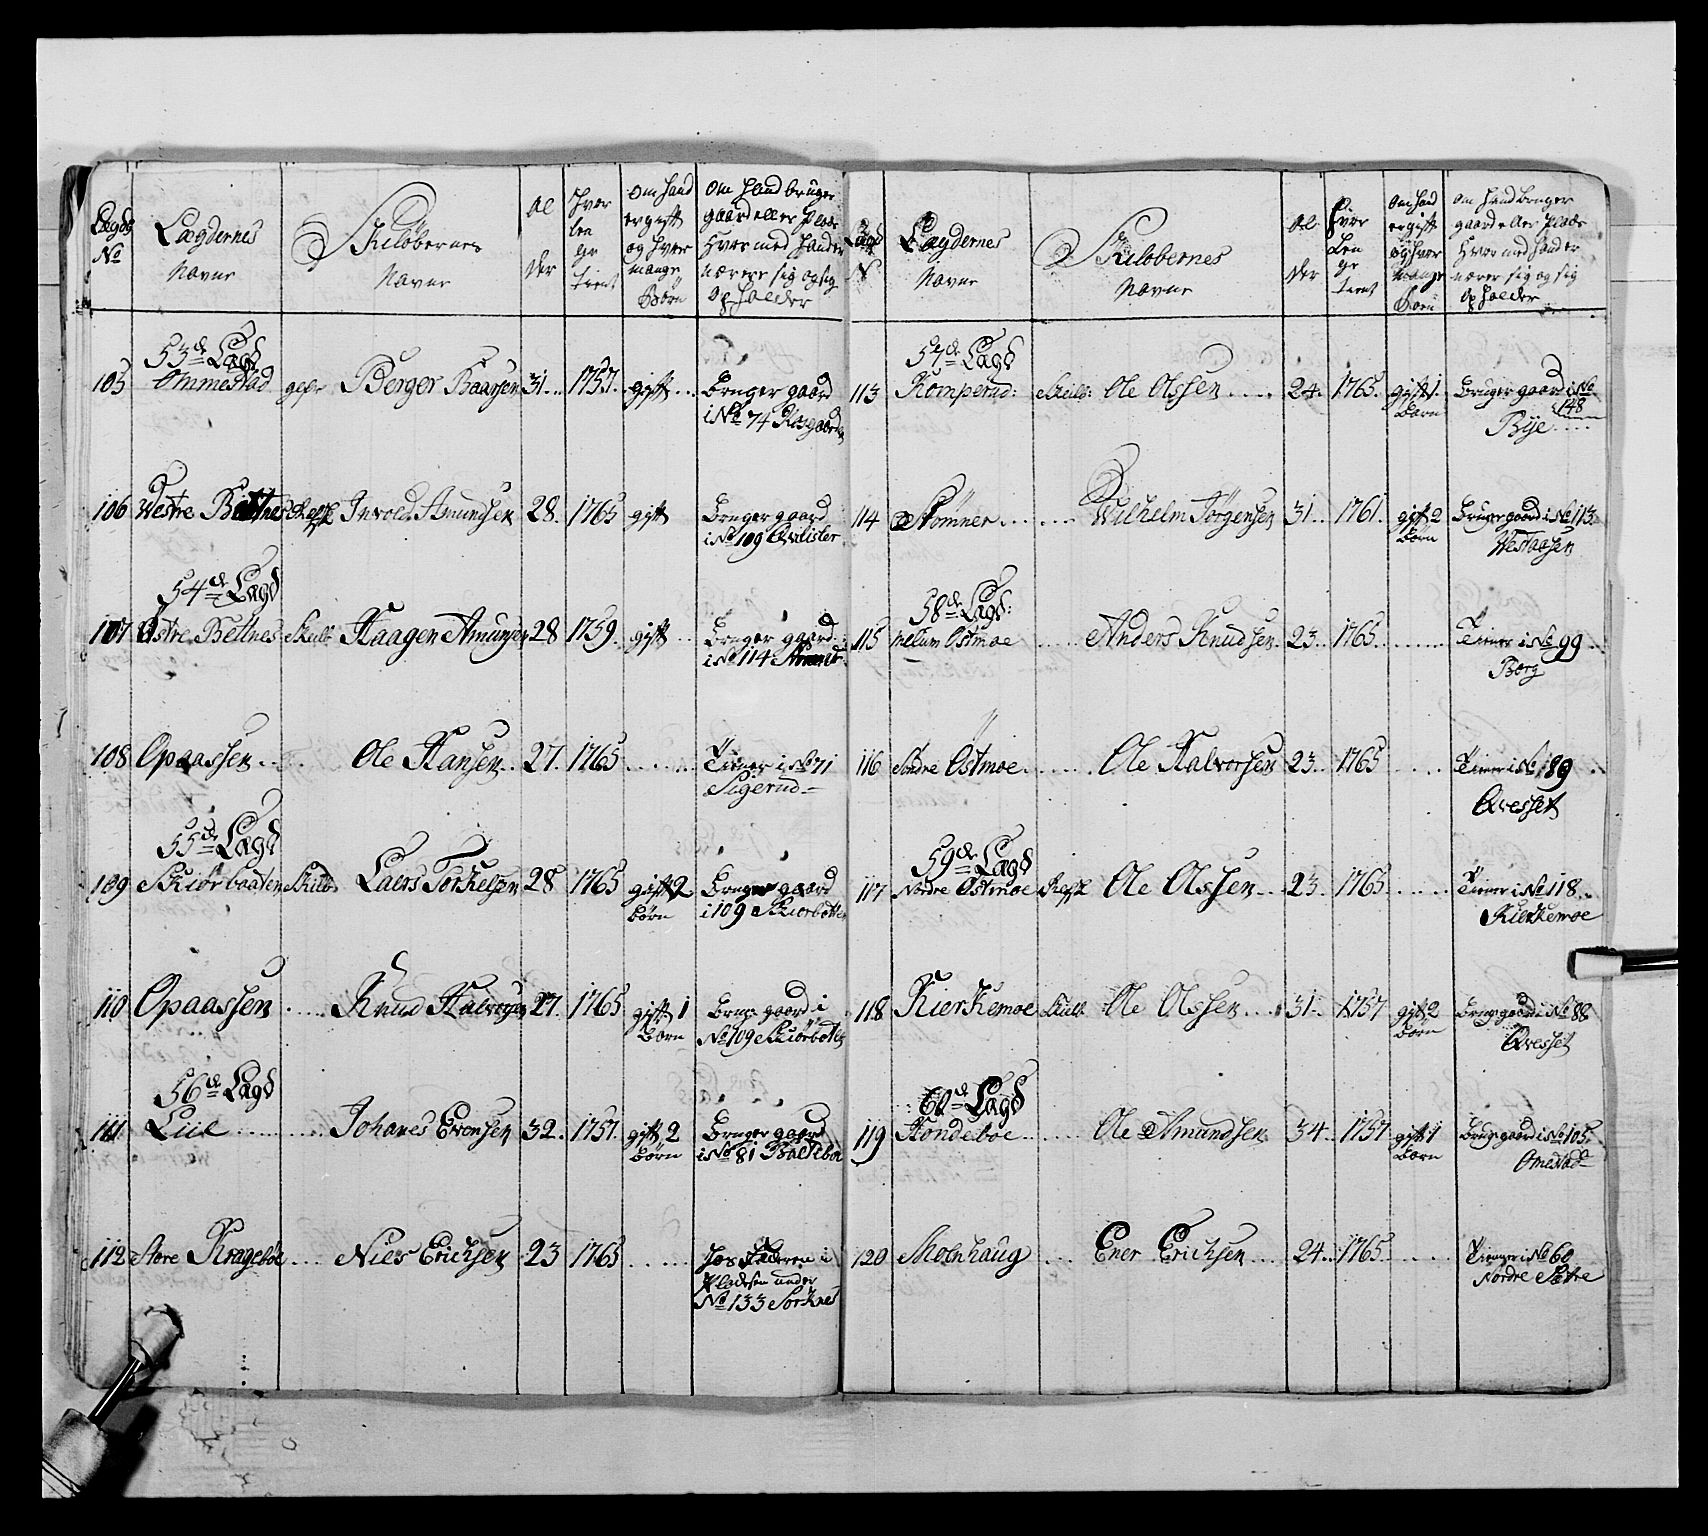 Lægds No
Lægdernes Navne
Skiløbernes Navne
Al der
Hvor len ge tient
Om hand er gift og hvor mange Børn
Om hand bruger gaard eller Plads Hvor med hand er nærer sig og sig Opholder
53de Lægd
105 Ommestad gefr Berger Baarsen 31 1757 gift Bruger gaard
i No 74
106 Westre Bettnes Reffl Amundsen 28 1765 gift Bruger gaard
i No 109 Qvlister
54de Lægd
107 Østre Bettnes Skilb Haagen Amunsen 28 1759 gift Bruger gaard
i No 114
108 Opaassen Ole Hansen 27 1765 Tiener i No 71
Sigerud
55de Lægd
109 Skiørbaaten Skilb Laers Torkelsen 28 1765 gift 2 Børn Bruger gaard
i 109 Skiørbotten
110 Opaassen Knud Halvorsen 27 1765 gift 1 Børn Bruger gaard i
No 109 Skiørbotten
56de Lægd
111 Liie Johanes Evensen 32 1757 gift 2 Børn Bruger gaard
i No 81
112 Store Kragebøe Niels Erichsen 23 1765 Hos Faderen i
Pladsen under
No 133 Sorknes
Lægd N
Lægdernes Navne
Skiløbernes Navne
Al der
Hvor Len ge tient
Om Hand er gift og hvor mange Børn
Om hand bruger gaard eller Plads Hvor med hand er nærer sig og sig Opholder
57de Lægd
113 Komperud: Skilb: Ole Olssen 24 1765 gift 1 Barn Bruger gaard i No 148
Bye
114 Stømner Wilhelm Jörgensen 31 1761 gift 2 Børn Bruger gaard i No 113
Westaasen
58de Lægd:
115 Mellum Østmoe Anders Knudsen 23 1765 Tiener i No 99
Berg
116 Søndre Østmoe Ole Halvorsen 23 1765 Tiener i No 89
Qvesset
59de Lægd
117 Nordre Østmoe Reffl Ole Olssen 23 1765 Tiener i No 118
Kierkemoe
118 Kierkemoe Skilb Ole Olssen 31 1757 gift 2 Børn Bruger gaard i No 88
Qvesset
60de Lægd
119 Hondeboe Ole Amundsen 34 1757 gift 1 Børn Bruger gaard i No 105
Omestad
120 Skolnhaug Ener Erichsen 24 1765 Tiener i No 60
Nordre Sætre